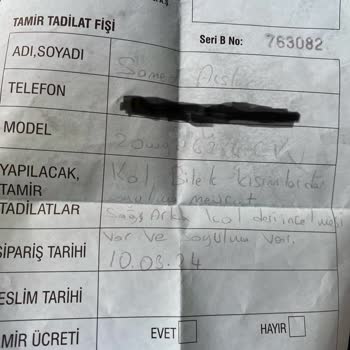 TAMİR TADİLAT FİŞİ
Seri B No: 763082
ADI,SOYADI
TELEFON
MODEL
YAPILACAK,
TAMİR
TADİLATLAR
Kol Bilek kısımlarında
mevcut
Sağ Arka kol deri incelmesi
var ve soyulma var.
SİPARİŞ TARİHİ
10.03.24
ESLİM TARİHİ
MİR ÜCRETİ
EVET
HAYIR